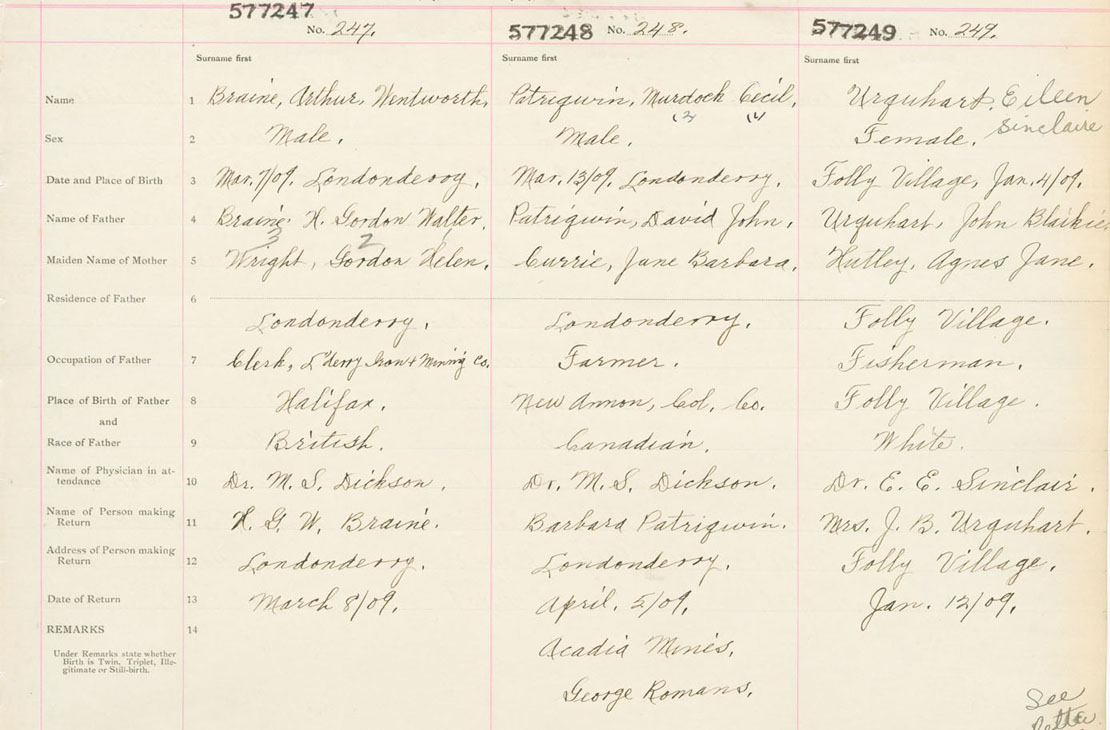 577247 577248 577249
No. 247. No. 248. No. 249.
Surname first Surname first Surname first
Name 1 Braine, Arthur, Wentworth, Patriquin, Murdock Cecil, Urquhart, Eileen
(2) (1) Sinclaire
Sex 2 Male. Male. Female.
Date and Place of Birth 3 Mar. 7/09. Londonderry. Mar. 13/09. Londonderry. Folly Village, Jan. 4/09.
Name of Father 4 Braine, H. Gordon Walter. Patriquin, David John. Urquhart, John Blaikie
3 2
Maiden Name of Mother 5 Wright, Gordon Helen. Currie, Jane Barbara. Hutley, Agnes Jane.
Residence of Father 6
Londonderry. Londonderry. Folly Village.
Occupation of Father 7 Clerk, L'derry Iron + Mining Co. Farmer. Fisherman.
Place of Birth of Father 8 Halifax. New Annon, Col. Co. Folly Village.
and
Race of Father 9 British. Canadian. White.
Name of Physician in at-
tendance 10 Dr. M. S. Dickson. Dr. M. S. Dickson. Dr. E. E. Sinclair.
Name of Person making
Return 11 H. G. W. Braine. Barbara Patriquin. Mrs. J. B. Urquhart.
Address of Person making
Return 12 Londonderry. Londonderry. Folly Village.
Date of Return 13 March 8/09. April, 5/09. Jan. 12/09.
REMARKS 14
Acadia Mines.
Under Remarks state whether
Birth is Twin, Triplet, Ille-
gitimate or Still-birth.
George Romans.
See